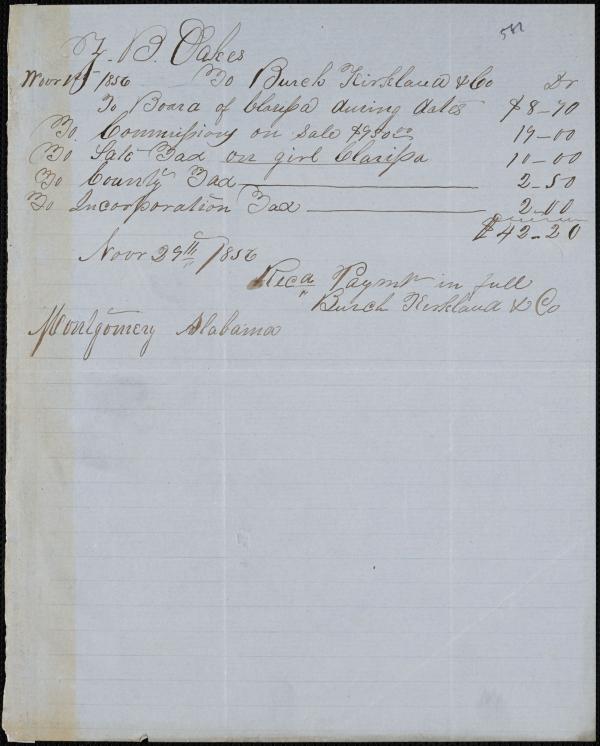 582
Z. B. Oakes
Novr 1856 To Burch Kirkland & Co Dr
To Board of Clarisa during dates $8-70
To Commissions on Sale $950.00 19-00
To State Tax on girl Clarisa 10-00
To County Tax 2-50
To Incorporation Tax 2-00
$42-20
Novr 29th 1856
Recd Paymt in full
Burch Kirkland & Co
Montgomery Alabama